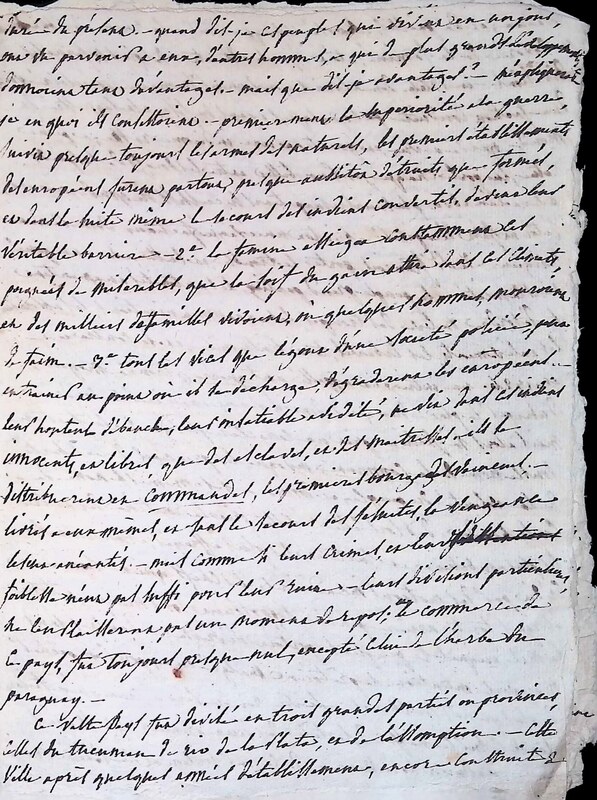 durée du présens. - quand dis-je ces peuples qui divisés en
on vu parvenir a eux, d'autres hommes, a qui de plus grands développements
donnoient tans d'avantages. - mais que dis-je avantages? -
je en quoi ils consistoient. - premièrement la superiorité a la guerre,
suivit presque toujours les armes des naturels, les premiers établissements
des européens furent partout presque aussitôt détruits que formés,
et dans la suite même le secours des indiens convertis, devint leur
véritable barriere. - 2.° la famine assiegea constamment ces
poignées de miserables, que la soif du gain attira dans ces climats
en des milliers de familles vivoient, où quelques hommes, mouroient
de faim. - 3.° tous les vices que légoua d'une société policée,
entrainés au point où il se décharge, dégraderent les européens. -
leur honteuse débauche, leur insatiable avidité, ne vit dans ces indiens
innocents, en libres, que des esclaves, et des maitresses. ils se
distribuerent en Commandes, les premieres bourgades vaincues. -
livrés a eux mêmes, et sans le secours des jésuites, la vengeance
les eut anéantis. - mais comme si leurs crimes, et leur
foiblesse n'eut pas suffi pour leur ruine - leurs divisions particulieres
ne leur laisserent pas un moment de repos, et le commerce de
ce pays, fut toujours presque nul, excepté celui de l'herbe du
paraguay. -
Ce vaste pays fut divisé en trois grandes parties ou provinces,
celles du tucuman de rio de la Plata, et de l'assomption. - Cette
Ville après quelques années d'établissement, encore construite